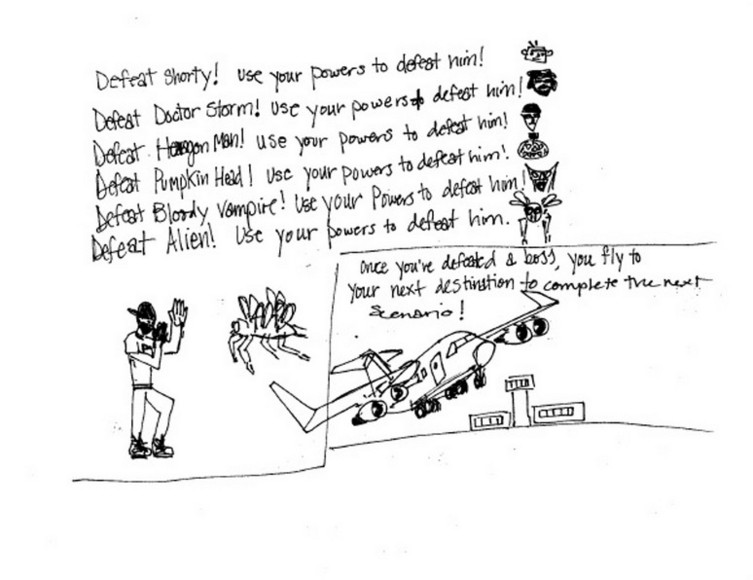 Defeat Shorty! Use your powers to defeat him!
Defeat Doctor Storm! Use your powers to defeat him!
Defeat Hexagon Man! Use your powers to defeat him!
Defeat Pumpkin Head! Use your powers to defeat him!
Defeat Bloody Vampire! Use your Powers to defeat him!
Defeat Alien! Use your powers to defeat him.
Once you've defeated a boss, you fly to
your next destination to complete the next
Scenario!